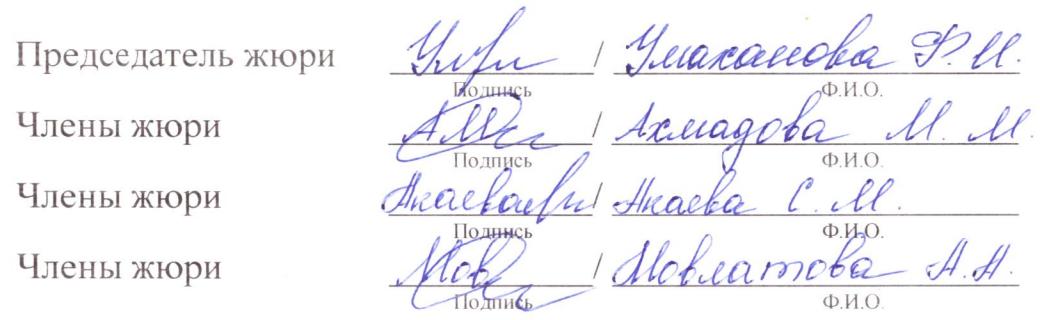 Председатель жюри / Умаханова Ф. И.
Подпись Ф.И.О.
Члены жюри / Ахмадова М. М.
Подпись Ф.И.О.
Члены жюри Акаева / Акаева С. М.
Подпись Ф.И.О.
Члены жюри Мов / Мовлатова А. А.
Подпись Ф.И.О.